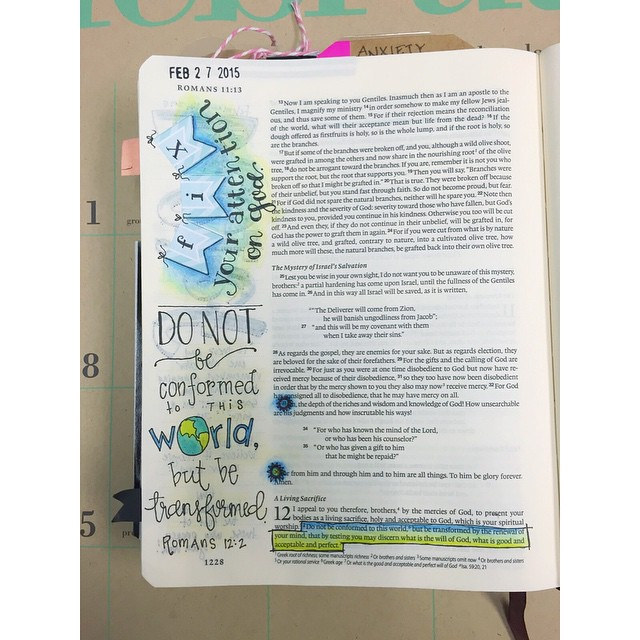 ANXIETY
FEB 27 2015
ROMANS 11:13
fix
your attention
on God.
DO NOT
be
conformed
to THIS
World,
but be
transformed
ROMANS 12:2
1228
13 Now I am speaking to you Gentiles. Inasmuch then as I am an apostle to the
Gentiles, I magnify my ministry 14 in order somehow to make my fellow Jews jeal-
ous, and thus save some of them. 15 For if their rejection means the reconciliation
of the world, what will their acceptance mean but life from the dead? 16 If the
dough offered as firstfruits is holy, so is the whole lump, and if the root is holy, so
are the branches.
17 But if some of the branches were broken off, and you, although a wild olive shoot,
were grafted in among the others and now share in the nourishing root1 of the olive
tree, 18 do not be arrogant toward the branches. If you are, remember it is not you who
support the root, but the root that supports you. 19 Then you will say, "Branches were
broken off so that I might be grafted in." 20 That is true. They were broken off because
of their unbelief, but you stand fast through faith. So do not become proud, but fear.
21 For if God did not spare the natural branches, neither will he spare you. 22 Note then
the kindness and the severity of God: severity toward those who have fallen, but God's
kindness to you, provided you continue in his kindness. Otherwise you too will be cut
off. 23 And even they, if they do not continue in their unbelief, will be grafted in, for
God has the power to graft them in again. 24 For if you were cut from what is by nature
a wild olive tree, and grafted, contrary to nature, into a cultivated olive tree, how
much more will these, the natural branches, be grafted back into their own olive tree.
The Mystery of Israel's Salvation
25 Lest you be wise in your own sight, I do not want you to be unaware of this mystery,
brothers:2 a partial hardening has come upon Israel, until the fullness of the Gentiles
has come in. 26 And in this way all Israel will be saved, as it is written,
"The Deliverer will come from Zion,
he will banish ungodliness from Jacob";
27 "and this will be my covenant with them
when I take away their sins."
28 As regards the gospel, they are enemies for your sake. But as regards election, they
are beloved for the sake of their forefathers. 29 For the gifts and the calling of God are
irrevocable. 30 For just as you were at one time disobedient to God but now have re-
ceived mercy because of their disobedience, 31 so they too have now been disobedient
in order that by the mercy shown to you they also may now3 receive mercy. 32 For God
has consigned all to disobedience, that he may have mercy on all.
the depth of the riches and wisdom and knowledge of God! How unsearchable
are his judgments and how inscrutable his ways!
34 "For who has known the mind of the Lord,
or who has been his counselor?"
35 "Or who has given a gift to him
that he might be repaid?"
from him and through him and to him are all things. To him be glory forever.
Amen.
A Living Sacrifice
12 I appeal to you therefore, brothers,4 by the mercies of God, to present your
bodies as a living sacrifice, holy and acceptable to God, which is your spiritual
worship.5 2 Do not be conformed to this world,6 but be transformed by the renewal of
your mind, that by testing you may discern what is the will of God, what is good and
acceptable and perfect.7
1 Greek root of richness; some manuscripts richness 2 Or brothers and sisters 3 Some manuscripts omit now 4 Or brothers and sisters
5 Or your rational service 6 Greek age 7 Or what is the good and acceptable and perfect will of God
1
8
5